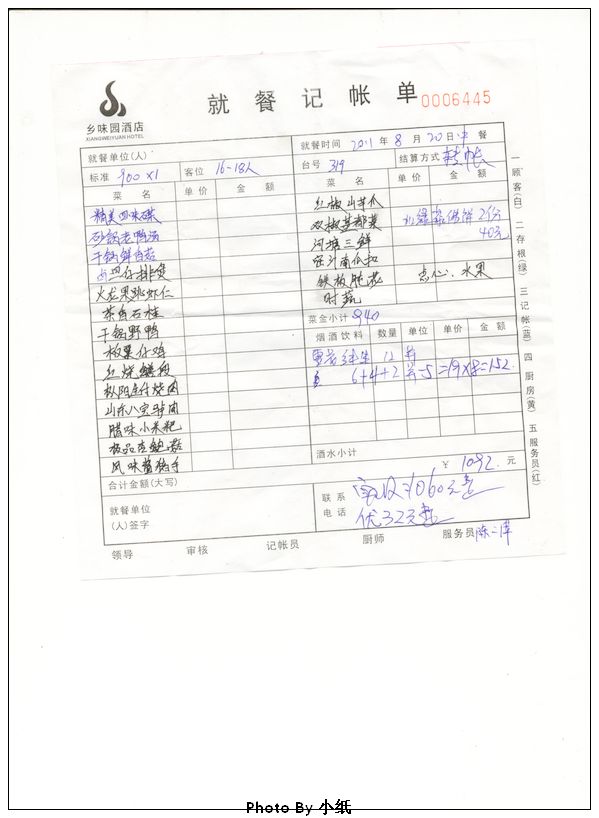 乡味园酒店
XIANGWEIYUAN HOTEL
就餐记帐单
0006445
就餐单位(人)
就餐时间 2011年8月20日中餐
标准 900×1
客位 16-18人
台号 319
结算方式 转帐
菜名 单价 金额
菜名 单价 金额
精美四味碟
砂锅老鸭汤
干锅鲜白菇
火龙果跳虾仁
茶角石桂
干锅野鸭
板栗仔鸡
红烧鳝段
山东八宝驴肉
腊味小米粑
风味酱猪手
红椒山芋爪
双椒芽都菜 2份
40元
河塘三鲜
蜜汁南瓜扣
铁板腰花 点心、水果
时蔬
菜金小计 940
烟酒饮料 数量 单位 单价 金额
12并
6+4+2并-5=19×8=152.
酒水小计
合计金额(大写)
¥ 1092.元
就餐单位
(人)签字
联系
电话
实收¥1060元整
优32元整
领导 审核 记帐员 厨师 服务员
一顾客(白) 二存根(绿) 三记帐(蓝) 四厨房(黄) 五服务员(红)
Photo By 小纸